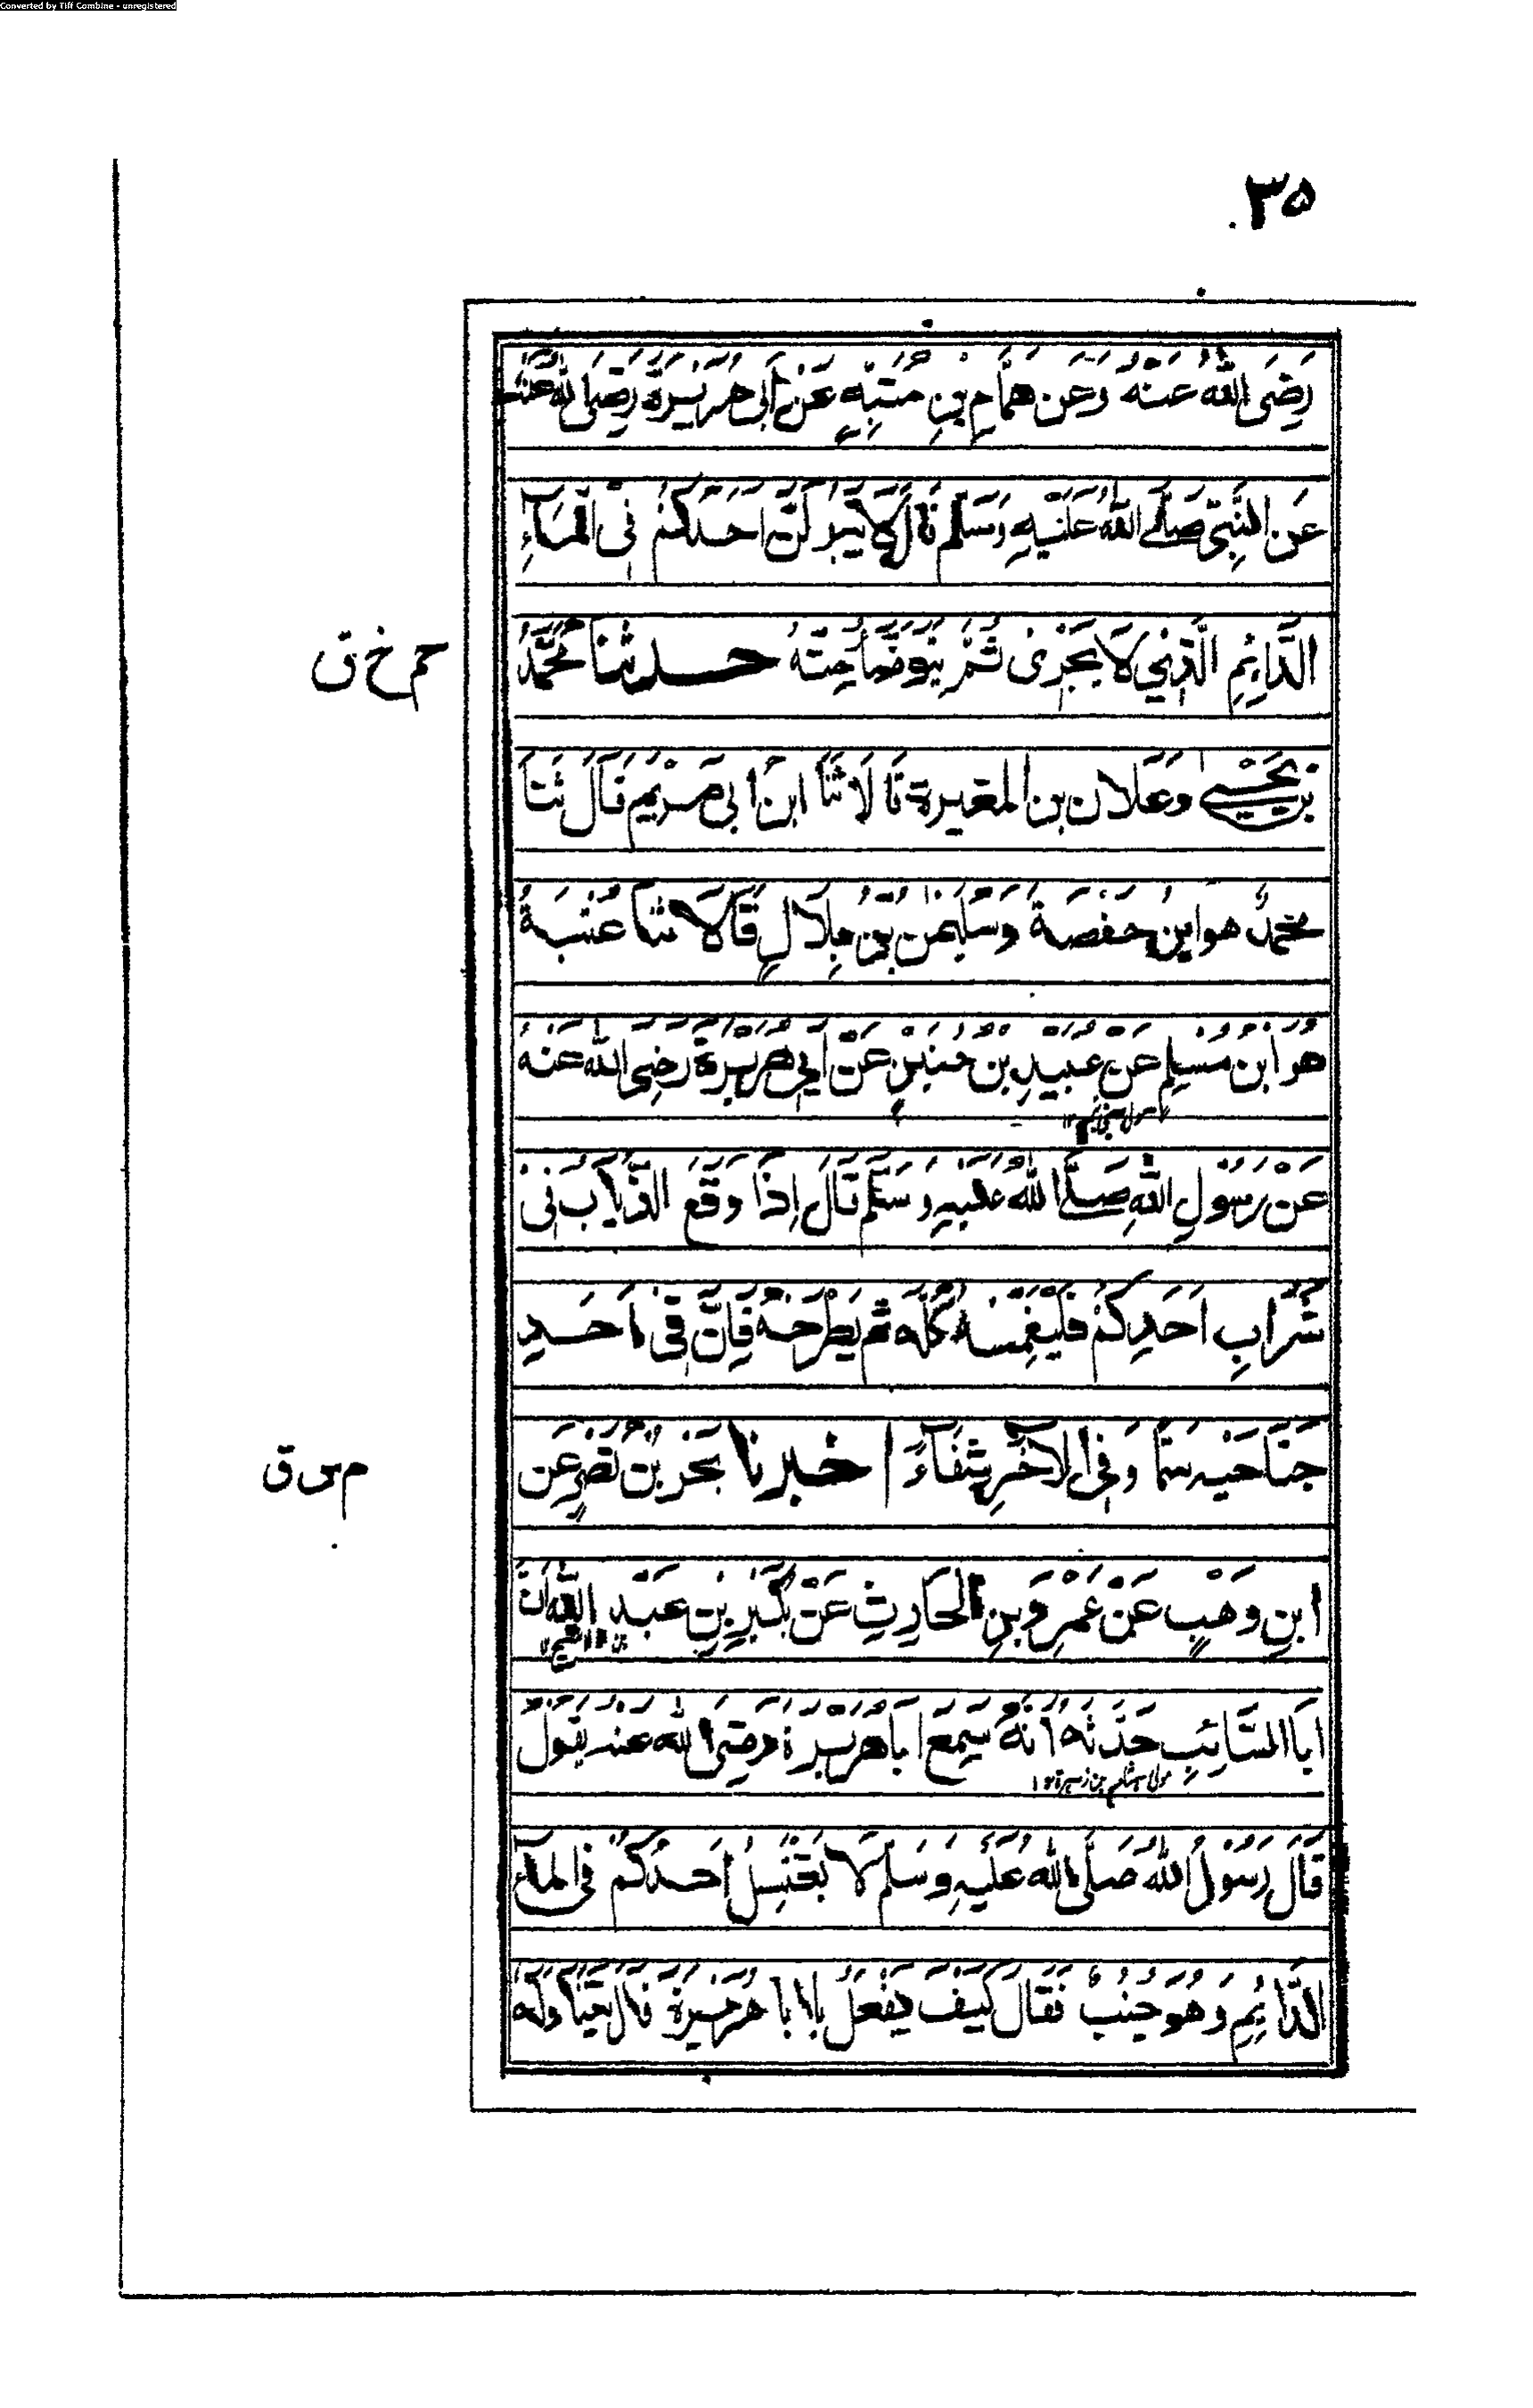 Converted by Tiff Combine - unregistered
٣۵
رَضِیَ اللهُ عَنْهُ وَعَن هَمَّامِ بْنِ مُنَبِّهٍ عَنْ اَبِیْ هُرَيْرَةَ رَضِیَ اللهُ عَنْهُ
عَنِ النَّبِیِّ صَلَّے اللهُ عَلَيْهِ وَسَلَّمَ قَالَ لَا يَبُولَنَّ اَحَدُكُمْ فِی الْمَآءِ
الدَّائِمِ الَّذِیْ لَا يَجْرِیْ ثُمَّ يَتَوَضَّأُ مِنْهُ حدثنا مُحَمَّدُ
حم خ ق
بْنُ يَحْيٰی وَعَلَان بن المغيرة قَالَا ثَنَا ابْنُ اَبِیْ مَرْيَم قَالَ ثَنَا
مُحَمَّدٌ هو ابنُ حَفْصَةَ وَسُلَيْمٰنُ بْنُ بِلَالٍ قَالَا ثنا عُتْبَةُ
هُوَ ابْنُ مُسْلِمٍ عَنْ عُبَيْدِ بْنِ حُنَيْنٍ عَنْ اَبِیْ هُرَيْرَةَ رَضِیَ الله عَنْهُ
عَنْ رَسُوْلِ اللهِ صَلَّے اللهُ عَلَيْهِ وَسَلَّمَ قَالَ اِذَا وَقَعَ الذُّبَابُ فِیْ
شَرَابِ اَحَدِكُمْ فَلْيَغْمِسْهُ كُلَّهُ ثُمَّ يَطْرَحْهُ فَاِنَّ فِیْ اَحَدِ
جَنَاحَيْهِ سَمًّا وَفِی الْآخَرِ شِفَآءً اخبرنا بَحْرُ بْنُ نَصْرٍ عَنِ
م س ق
ابْنِ وَهْبٍ عَنْ عَمْرِو بْنِ الْحَارِثِ عَنْ بُكَيْرِ بْنِ عَبْدِ اللهِ اَنَّ
اَبَا السَّائِبِ حَدَّثَهُ اَنَّهُ سَمِعَ اَبَا هُرَيْرَةَ رَضِیَ الله عَنْهُ يَقُوْلُ
مولی هشام بن زهرة ١٢
قَالَ رَسُوْلُ اللهُ صَلَّی اللهُ عَلَيْهِ وَسَلَّمَ لَا يَغْتَسِلُ اَحَدُكُمْ فِی الْمَآءِ
الدَّائِمِ وَهُوَ جُنُبٌ فَقَالَ كَيْفَ يَفْعَلُ يَا اَبَا هُرَيْرَةَ قَالَ يَتَنَاوَلُهُ